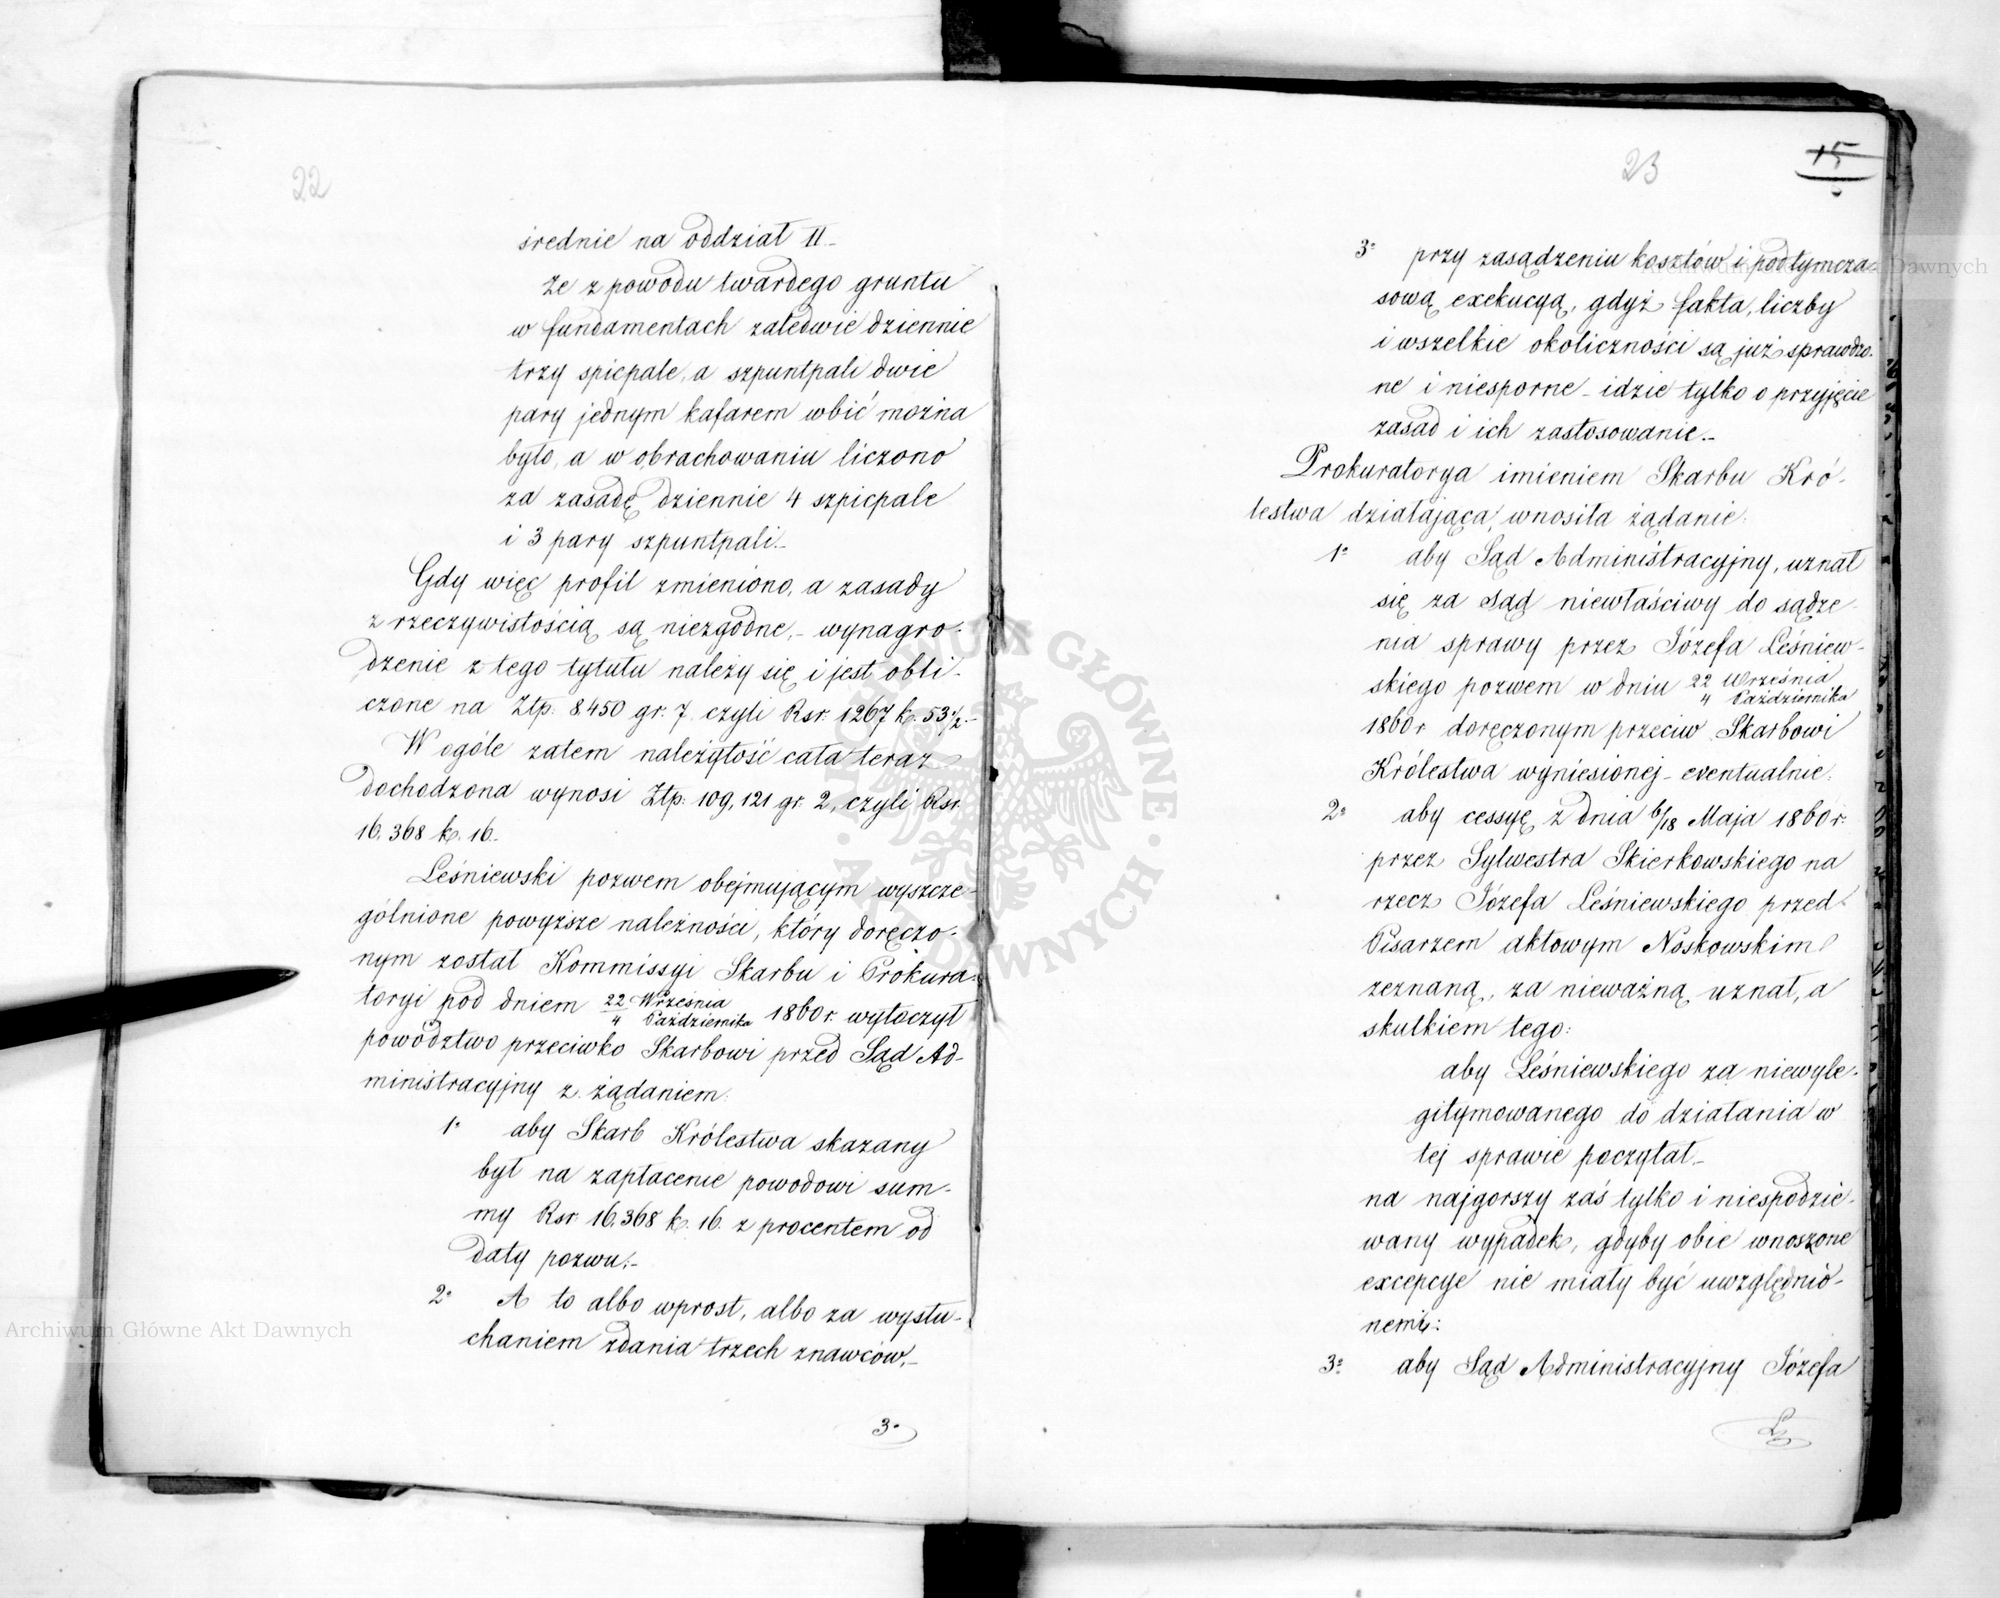 22
średnie na oddział II_
że z powodu twardego gruntu
w fundamentach zaledwie dziennie
trzy spicpale, a szpuntpali dwie
pary jednym kafarem wbić można
było, a w obrachowaniu liczono
za zasadę dziennie 4 szpicpale
i 3 pary szpuntpali._
Gdy więc profil zmieniono, a zasady
z rzeczywistością są niezgodne,_ wynagro-
dzenie z tego tytułu należy się i jest obli-
czone na Złp. 8450 gr. 7. czyli Rsr. 1267 k. 53½._
W ogóle zatem należytość cała teraz
dochodzona wynosi Złp. 109,121 gr. 2, czyli Rsr.
16,368 k. 16._
Leśniewski pozwem obejmującym wyszcze-
gólnione powyższe należności, który doręczo-
nym został Kommissyi Skarbu i Prokura-
toryi pod dniem 22 Września / 4 Października 1860 r. wytoczył
powództwo przeciwko Skarbowi przed Sąd Ad-
ministracyjny z żądaniem:
1° aby Skarb Królestwa skazany
był na zapłacenie powodowi sum-
my Rsr. 16,368 k. 16. z procentem od
daty pozwu._
2° A to albo wprost, albo za wysłu-
chaniem zdania trzech znawców,_
3°
23
15
3° przy zasądzeniu kosztów i pod tymcza-
sową exekucyą, gdyż fakta, liczby
i wszelkie okoliczności są już sprawdzo-
ne i niesporne_ idzie tylko o przyjęcie
zasad i ich zastosowanie._
Prokuratorya imieniem Skarbu Kró-
lestwa działająca, wnosiła żądanie:
1° aby Sąd Administracyjny, uznał
się za sąd niewłaściwy do sądze-
nia sprawy przez Józefa Leśniew-
skiego pozwem w dniu 22 Września / 4 Października
1860 r. doręczonym przeciw Skarbowi
Królestwa wyniesionej_ eventualnie:
2° aby cessyę z dnia 6/18 Maja 1860 r.
przez Sylwestra Skierkowskiego na
rzecz Józefa Leśniewskiego przed
Pisarzem aktowym Noskowskim
zeznaną, za nieważną uznał, a
skutkiem tego:
aby Leśniewskiego za niewyle-
gitymowanego do działania w
tej sprawie poczytał_
na najgorszy zaś tylko i niespodzie-
wany wypadek, gdyby obie wnoszone
excepcye nie miały być uwzględnio-
nemi:
3° aby Sąd Administracyjny Józefa
ARCHIWUM GŁÓWNE · AKT DAWNYCH ·
Archiwum Główne Akt Dawnych
Archiwum Główne Akt Dawnych